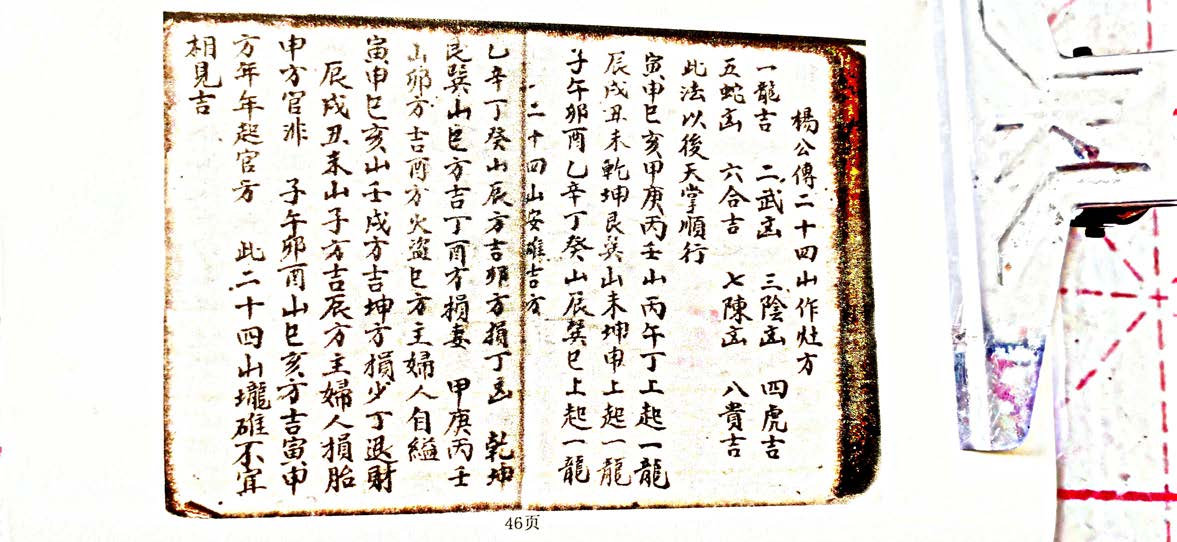 楊公傳二十四山作灶方
一龍吉　二武凶　三陰凶　四虎吉
五蛇凶　六合吉　七陳凶　八貴吉
此法以後天掌順行
寅申巳亥甲庚丙壬山丙午丁上起一龍
辰戌丑未乾坤艮巽山未坤申上起一龍
子午卯酉乙辛丁癸山辰巽巳上起一龍
二十四山安碓吉方
乙辛丁癸山辰方吉卯方損丁凶　乾坤
艮巽山巳方吉丁酉方損妻　甲庚丙壬
山卯方吉酉方火盜巳方主婦人自縊
寅申巳亥山壬戌方吉坤方損少丁退財
辰戌丑未山子方吉辰方主婦人損胎
申方官非　子午卯酉山巳亥方吉寅申
方年年起官方　此二十四山壠碓不宜
相見吉
46页